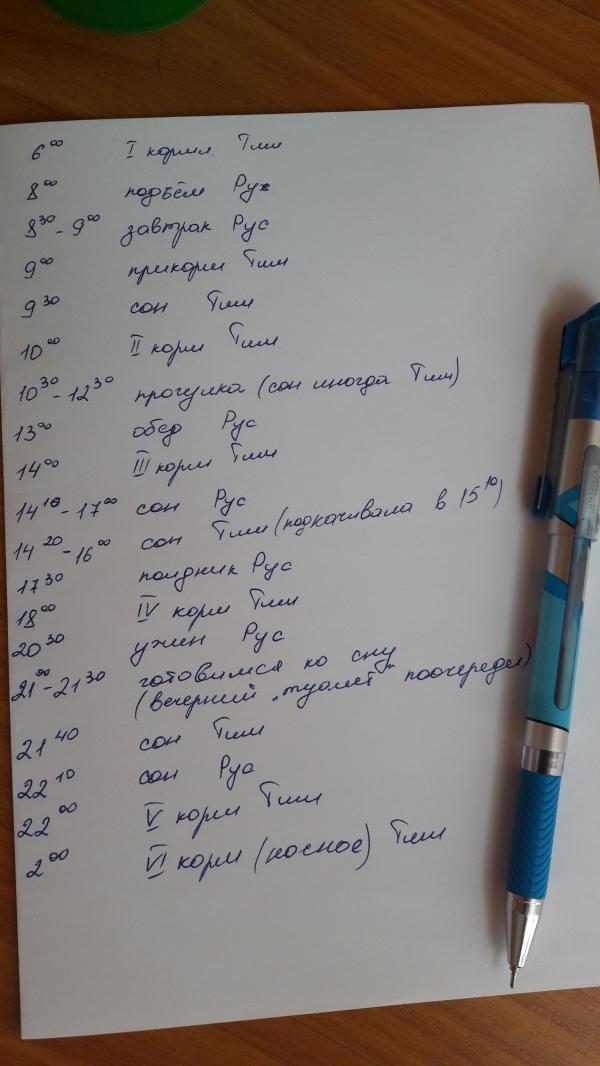 6⁰⁰ I кормл. Тим
8⁰⁰ подъём Рус
8³⁰ - 9⁰⁰ завтрак Рус
9⁰⁰ прикорм Тим
9³⁰ сон Тим
10⁰⁰ II корм Тим
10³⁰ - 12³⁰ прогулка (сон иногда Тим)
13⁰⁰ обед Рус
14⁰⁰ III корм Тим
14¹⁰ - 17⁰⁰ сон Рус
14²⁰ - 16⁰⁰ сон Тим (подкачивала в 15¹⁰)
17³⁰ полдник Рус
18⁰⁰ IV корм Тим
20³⁰ ужин Рус
21⁰⁰ - 21³⁰ готовимся ко сну
(вечерний „туалет" поочереди)
21⁴⁰ сон Тим
22¹⁰ сон Рус
22⁰⁰ V корм Тим
2⁰⁰ VI корм (носное) Тим